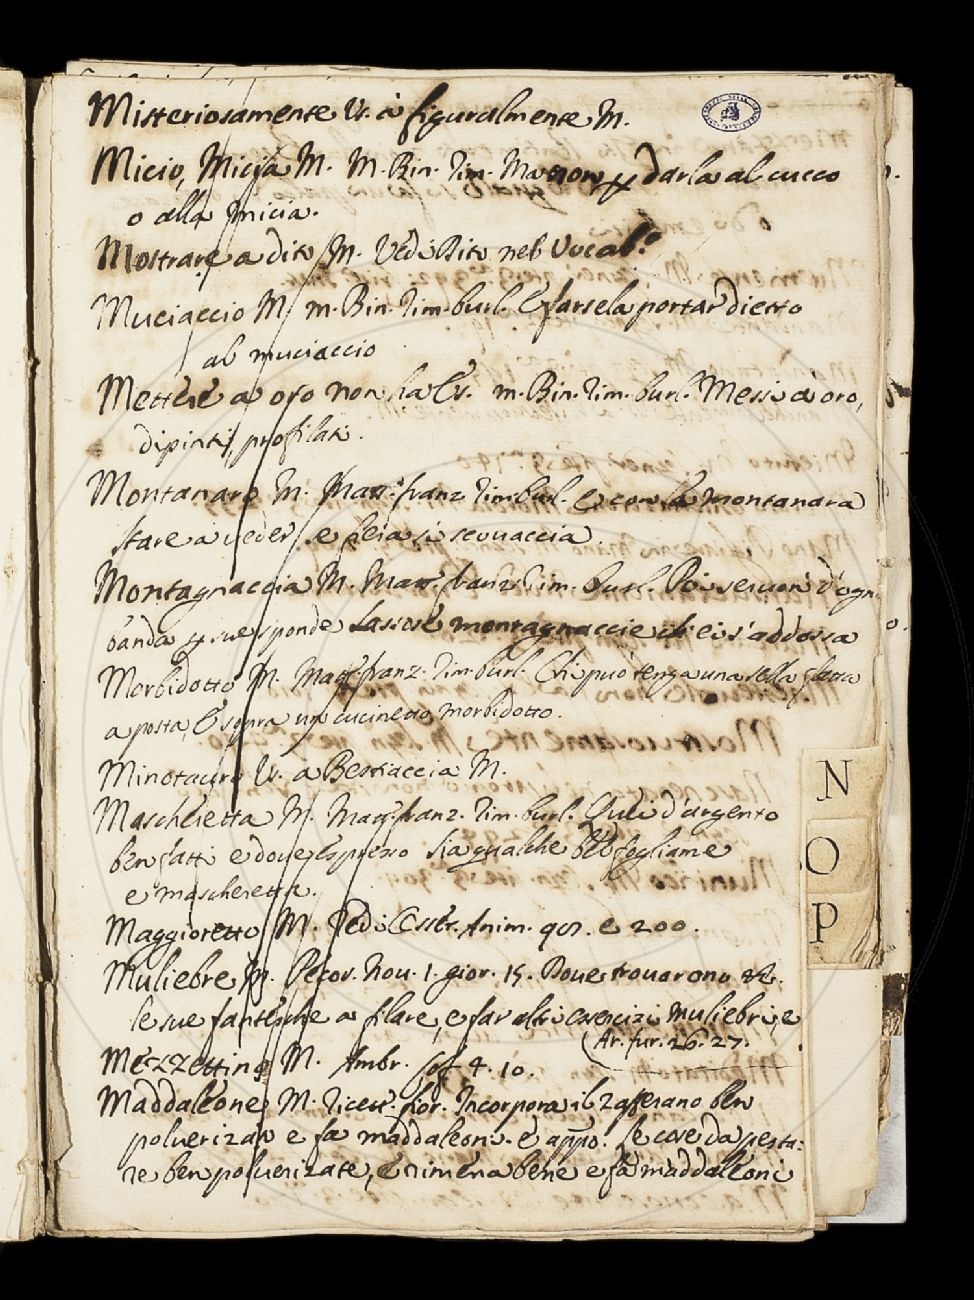 Misteriosamente V. a figuralmente M.
Micio, Micia M. M. Bin. rim. Ma non p darla al cucco
o alla micia.
Mostrare a dito M. Vedi Dito nel Vocab.º
Muciaccio M. m. Bin. rim. burl. E farsela portar dietro
al muciaccio
Mettere a oro non ha V. m. Bin. rim. burl. Messi a oro,
dipinti, profilati.
Montanaro M. Matt. franz. rim. burl. E con la montanara
stare a veder se
Montagnaccia M. Matt. franz. rim. burl. Poi se vien d'ogn.
banda
sponde Lassose montagnaccie che ci s'addossa
Morbidotto M. Matt. franz. rim. burl. Chi può tenga una sella fatta
a posta, E sopra un cucinetto morbidotto.
Minotauro V. a Bestiaccia M.
Mascheretta M. Matt. franz. rim. burl. d'argento
ben fatti e dove espresso sia qualche bel fogliame
e mascheretta.
Maggioretto M. Vedi Esser. Anim. 901. e 200.
Muliebre M. Pecor. Nov. 1. gior. 15. Dove trovarono &c.
le sue fantesche a filare, e far altri esercizi muliebri, e
(Ar. fur. 26. 27.
Mezzettino M. Ambr. 4. 10.
Maddaleone M. Ricett. fior. Incorpora il zafferano ben
polverizato e fa maddaleoni. E appo. Le cose da pesta:
re ben polverizate, e rimena bene e fa maddaleoni
N
O
P